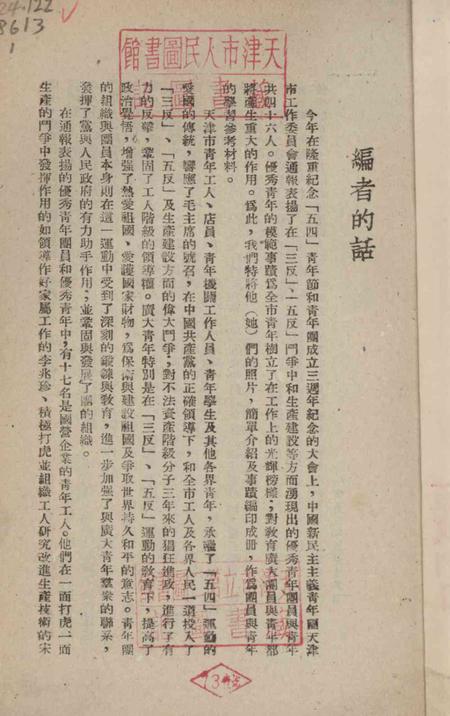 編者的話
今年在隆重紀念「五四」青年節和青年團成立三週年紀念的大會上，中國新民主主義青年團天津
市工作委員會通報表揚了在「三反」、「五反」鬥爭中和生產建設等方面湧現出的優秀青年團員與青年
共四十六人。優秀青年的模範事蹟爲全市青年樹立了在工作上的光輝榜樣；對教育廣大團員與青年都
將產生重大的作用。爲此，我們特將他（她）們的照片，簡單介紹及事蹟編印成冊，作爲團員與青年
的學習參考材料。
天津市青年工人、店員、青年機關工作人員、青年學生及其他各界青年，承繼了「五四」運動的
愛國的傳統，響應了毛主席的號召，在中國共產黨的正確領導下，和全市工人及各界人民一道投入了
「三反」、「五反」及生產建設方面的偉大鬥爭；對不法資產階級分子三年來的猖狂進攻，進行了有
力的反擊，鞏固了工人階級的領導權。廣大青年特別是在「三反」、「五反」運動的教育下，提高了
政治覺悟，增強了熱愛祖國、愛護國家財物，爲保衛與建設祖國及爭取世界持久和平的意志。青年團
的組織與團員本身則在這一運動中受到了深刻的鍛鍊與教育，進一步加強了與廣大青年羣衆的聯系，
發揮了黨與人民政府的有力助手作用；並鞏固與發展了團的組織。
在通報表揚的優秀青年團員和優秀青年中，有十七名是國營企業的青年工人。他們在一面打虎一面
生產的鬥爭中發揮作用的如領導作好家屬工作的李兆珍、積極打虎並組織工人研究改進生產技術的宋
天津市人民圖書館
24.122
8613
1